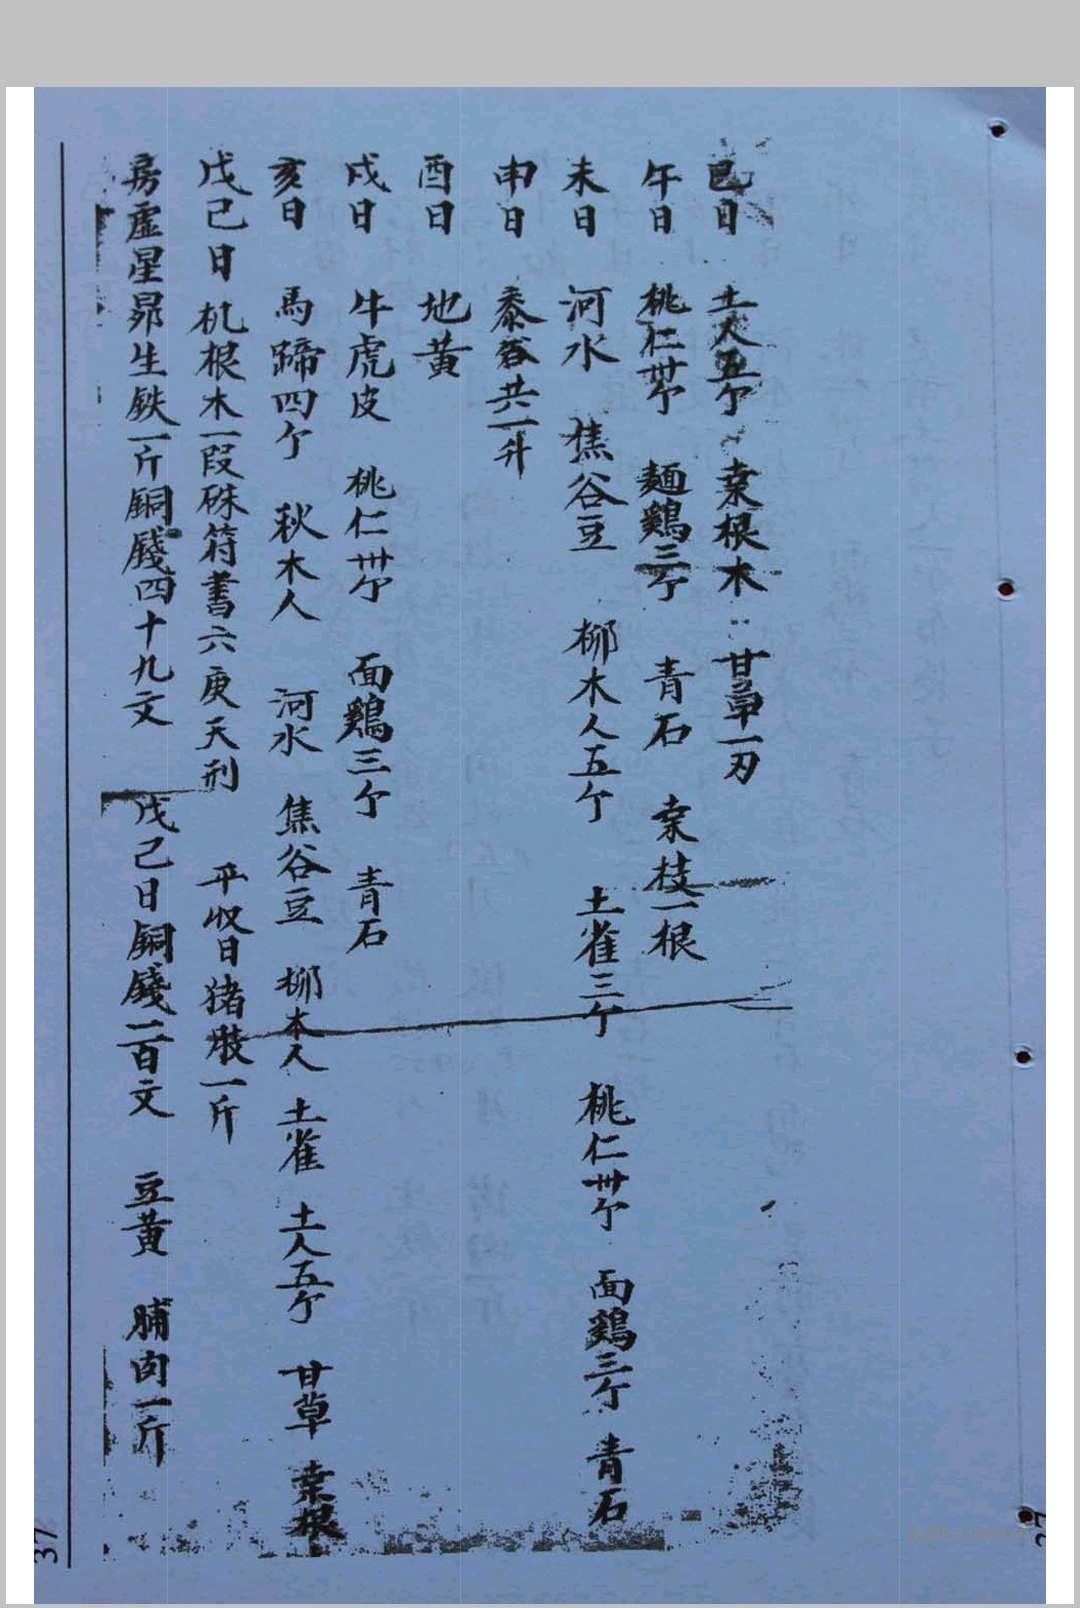 巳日 土人五个 桒根木 甘草一刃
午日 桃仁卅个 麺鷄三个 青石 桒枝一根
未日 河水 焦谷豆 柳木人五个 土雀三个 桃仁卅个 面鷄三个 青石
申日 黍谷共一升
酉日 地黃
戌日 牛虎皮 桃仁卅个 面鷄三个 青石
亥日 馬蹄四个 秋木人 河水 焦谷豆 柳木人 土雀 土人五个 甘草 桒根
戊己日机根木一段硃符書六庚天刑 平收日猪肢一斤
房虚星昴生鉄一斤銅錢四十九文 戊己日銅錢二百文 豆黃 脯肉一斤
37
37